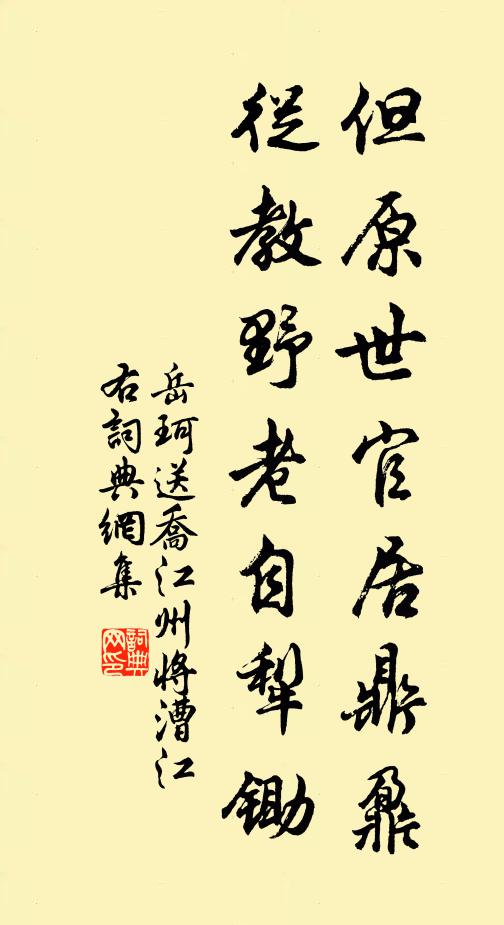 但原世官居鼎鼐
從教野老自犁鋤
岳珂送喬江州將漕江
右詞典網集
詞典網印